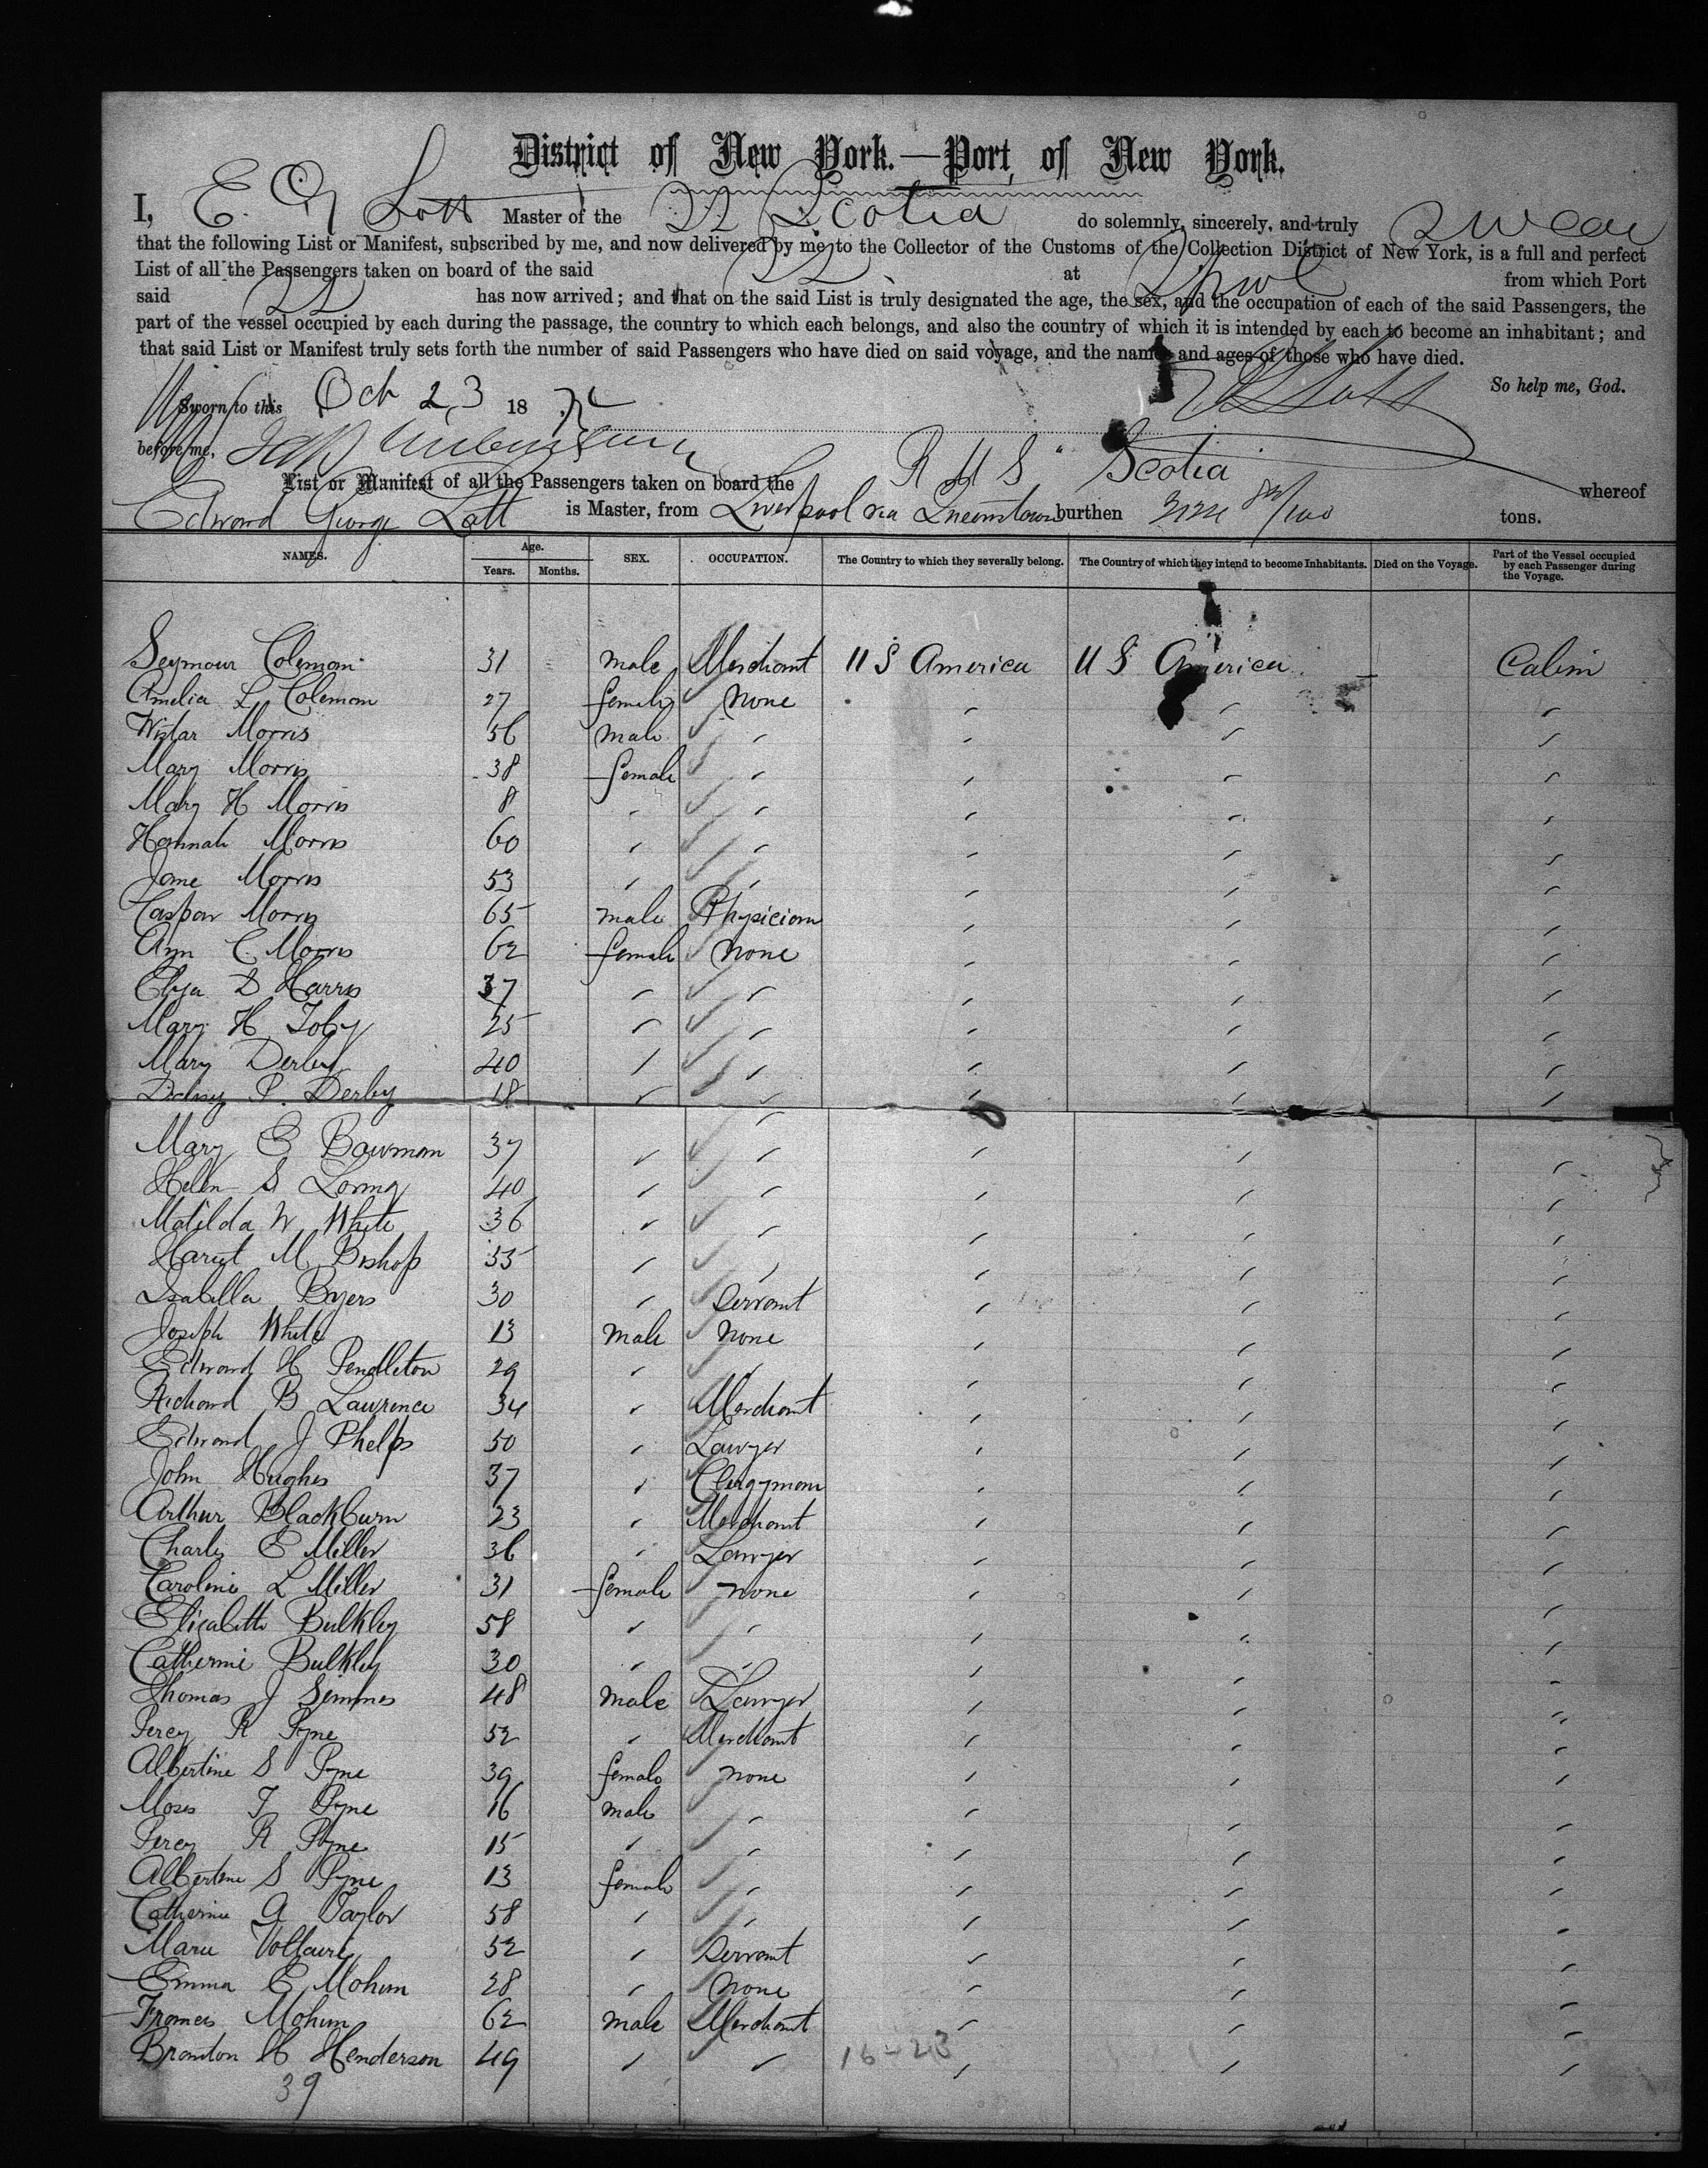 District of New York.—Port of New York.
I, E. G. Lott Master of the SS Scotia do solemnly, sincerely, and truly swear
that the following List or Manifest, subscribed by me, and now delivered by me to the Collector of the Customs of the Collection District of New York, is a full and perfect
List of all the Passengers taken on board of the said SS at Lpwl from which Port
said SS has now arrived; and that on the said List is truly designated the age, the sex, and the occupation of each of the said Passengers, the
part of the vessel occupied by each during the passage, the country to which each belongs, and also the country of which it is intended by each to become an inhabitant; and
that said List or Manifest truly sets forth the number of said Passengers who have died on said voyage, and the names and ages of those who have died.
So help me, God.
Sworn to this Oct 23 1872 EG Lott
before me,
List or Manifest of all the Passengers taken on board the R M S "Scotia whereof
Edward George Lott is Master, from Liverpool via Queenstown burthen tons.
NAMES. Age. Years. Months. SEX. OCCUPATION. The Country to which they severally belong. The Country of which they intend to become Inhabitants. Died on the Voyage. Part of the Vessel occupied by each Passenger during the Voyage.
Seymour Coleman 31 male Merchant U S America U S America Cabin
Amelia L Coleman 27 female None
Wistar Morris 56 male
Mary Morris 38 female
Mary H Morris 8
Hannah Morris 60
Jane Morris 53
Caspar Morris 65 male Physician
Ann C. Morris 62 female None
Harris 37
Mary H Toby 25
Mary Derby 40
P. Derby 18
Mary E Bowman 37
Helen S Loring 40
Matilda W White 36
Hariet M Bishop 55
Isabella Byers 30 Servant
Joseph White 13 male None
Edward H Pendleton 29
Richard B Lawrence 34 Merchant
Edward J Phelps 50 Lawyer
John Hughes 37 Clergyman
Arthur Blackburn 23 Merchant
Charles E Miller 36 Lawyer
Caroline L Miller 31 female none
Elizabeth Bulkley 58
Catherine Bulkley 30
Thomas J Semmes 48 male Lawyer
Percy R Pyne 52 Merchant
Albertine S Pyne 39 female none
Moses T Pyne 16 male
Percy R Pyne 15
Albertine S Pyne 13 female
Catherine A Taylor 58
Marie Voltaire 52 Servant
Emma E Mohun 28 None
Francis Mohun 62 male Merchant
Branton H Henderson 49 16-23
39